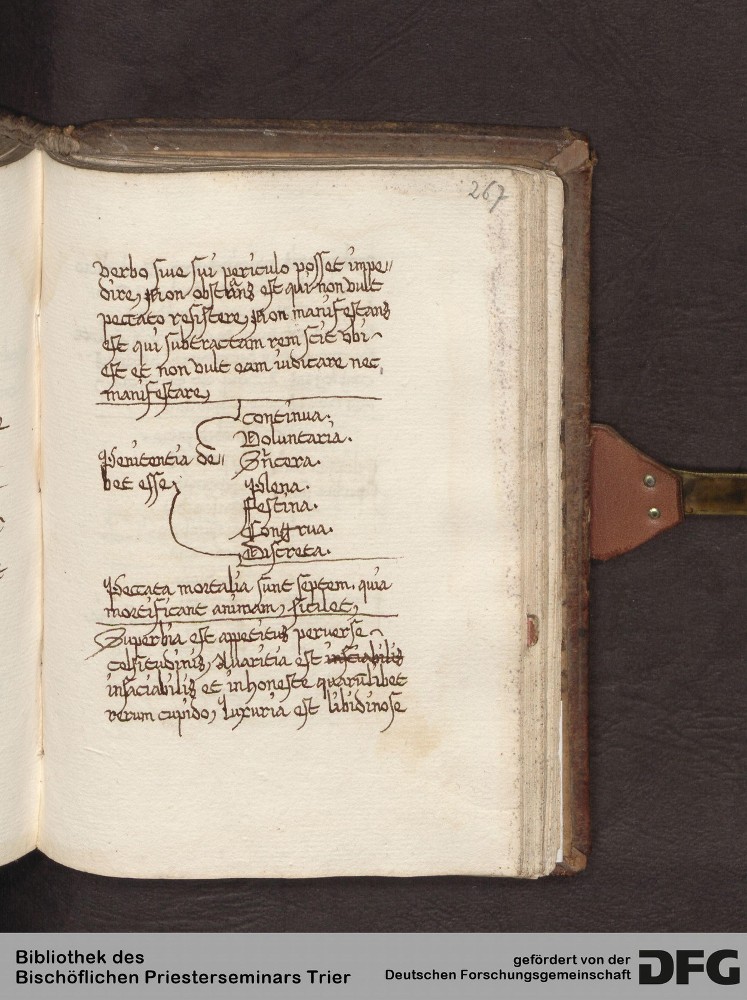 267
verbo siue sui periculo posset impe//
dire, Non obstans est qui non vult
peccato resistere, Non manifestans
est qui subtractam rem scit vbi
est et non vult eam iudicare nec,
manifestare,
Continua.
Voluntaria.
Penitentia de// Sincera.
bet esse, Plena.
Festina.
Congrua.
Discreta.
Peccata mortalia sunt septem. quia
mortificant animam, scilet,
Superbia est appetitus peruerse
celsitudinis, Auaritia est insciabilis
insaciabilis et inhoneste quarūlibet
rerum cupido, Luxuria est libidinose
Bibliothek des
Bischöflichen Priesterseminars Trier
gefördert von der
Deutschen Forschungsgemeinschaft DFG